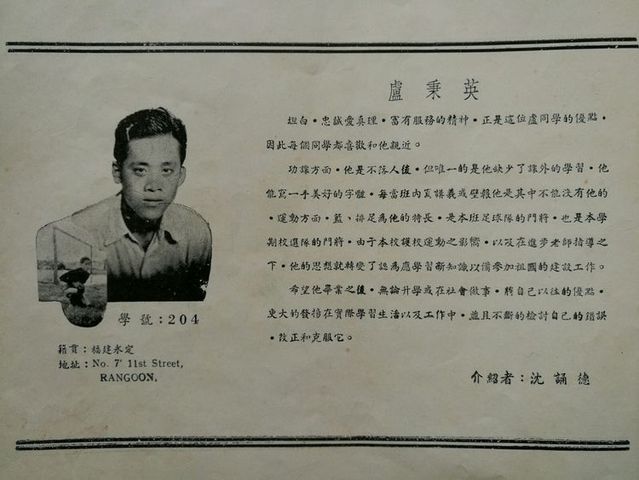 盧秉英
坦白·忠誠愛真理·富有服務的精神·正是這位盧同學的優點·
因此每個同學都喜歡和他親近。
功課方面·他是不落人後·但唯一的是他缺少了課外的學習·他
能寫一手美好的字體·每當班內頁講義或壁報他是其中不能沒有他的
·運動方面·籃、排足為他的特長·是本班足球隊的門將·也是本學
期校選隊的門將·由于本校護校運動之影響·以及在進步老師指導之
下·他的思想就轉變了認為應學習新知識以備參加祖國的建設工作。
希望他畢業之後·無論升學或在社會做事·將自己以往的優點·
更大的發揚在實際學習生活以及工作中·並且不斷的檢討自己的錯誤
·改正和克服它。
介紹者：沈誦德
學號：204
籍貫：福建永定
地址：No. 7' 11st Street,
RANGOON.